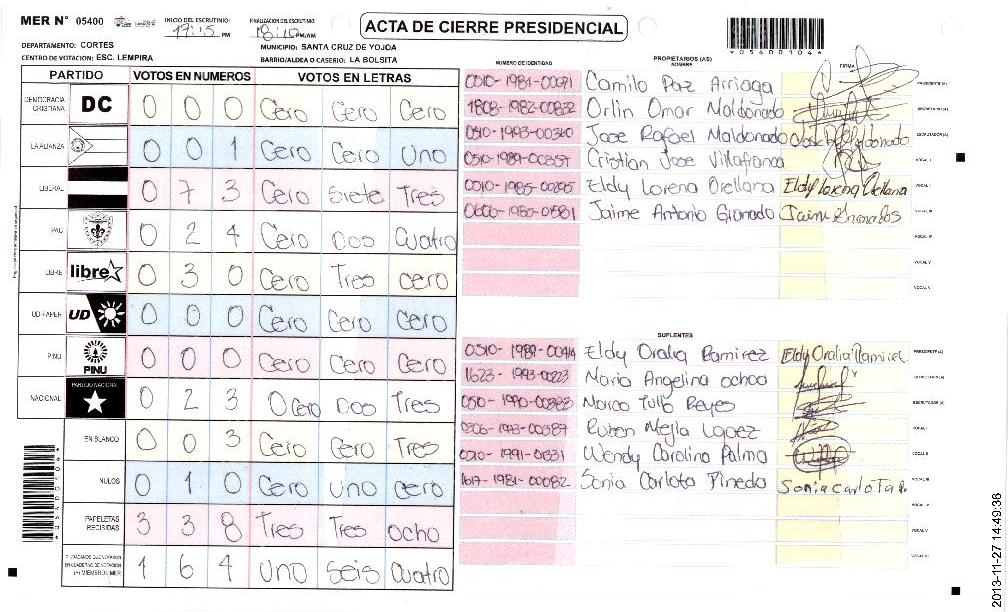 MER N° 05400
INICIO DEL ESCRUTINIO: 17:15 PM
FINALIZACION DEL ESCRUTINIO: 18:10 PM/AM
ACTA DE CIERRE PRESIDENCIAL
*05400104*
DEPARTAMENTO: CORTES
MUNICIPIO: SANTA CRUZ DE YOJOA
CENTRO DE VOTACION: ESC. LEMPIRA
BARRIO/ALDEA O CASERIO: LA BOLSITA
PARTIDO VOTOS EN NUMEROS VOTOS EN LETRAS
DEMOCRACIA CRISTIANA DC 0 0 0 Cero Cero Cero
LA ALIANZA 0 0 1 Cero Cero Uno
LIBERAL 0 7 3 Cero Siete Tres
PAC 0 2 4 Cero Dos Cuatro
LIBRE libre 0 3 0 Cero Tres Cero
UD-FAPER UD 0 0 0 Cero Cero Cero
PINU PINU 0 0 0 Cero Cero Cero
NACIONAL PARTIDO NACIONAL 0 2 3 Cero Dos Tres
EN BLANCO 0 0 3 Cero Cero Tres
NULOS 0 1 0 Cero Uno Cero
PAPELETAS RECIBIDAS 3 3 8 Tres Tres Ocho
CIUDADANOS QUE VOTARON EN CUADERNO DE VOTACION (+) MIEMBROS MER 1 6 4 Uno Seis Cuatro
PROPIETARIOS (AS)
NUMERO DE IDENTIDAD NOMBRE FIRMA
0510-1981-00071 Camilo Paz Arriaga PRESIDENTE (A)
1808-1982-00832 Orlin Omar Maldonado SECRETARIO (A)
0510-1993-00360 Jose Rafael Maldonado ESCRUTADOR (A)
0510-1989-00357 Cristian Jose Villafranca VOCAL I
0510-1985-00205 Eldy Lorena Orellana Eldy Lorena Orellana VOCAL II
0606-1985-0581 Jaime Antonio Granado VOCAL III
VOCAL IV
VOCAL V
VOCAL VI
SUPLENTES
0510-1989-00414 Eldy Oralia Ramirez Eldy Oralia Ramirez PRESIDENTE (A)
1623-1993-00223 Maria Angelina Ochoa SECRETARIO (A)
0510-1990-00383 Marco Tulio Reyes ESCRUTADOR (A)
0306-1993-00387 Ruben Mejia Lopez VOCAL I
0510-1991-01331 Wendy Carolina Palma VOCAL II
1617-1981-00082 Sonia Carlota Pineda Sonia Carlota VOCAL III
VOCAL IV
VOCAL V
VOCAL VI
*05400104*
2013-11-27 14:49:36